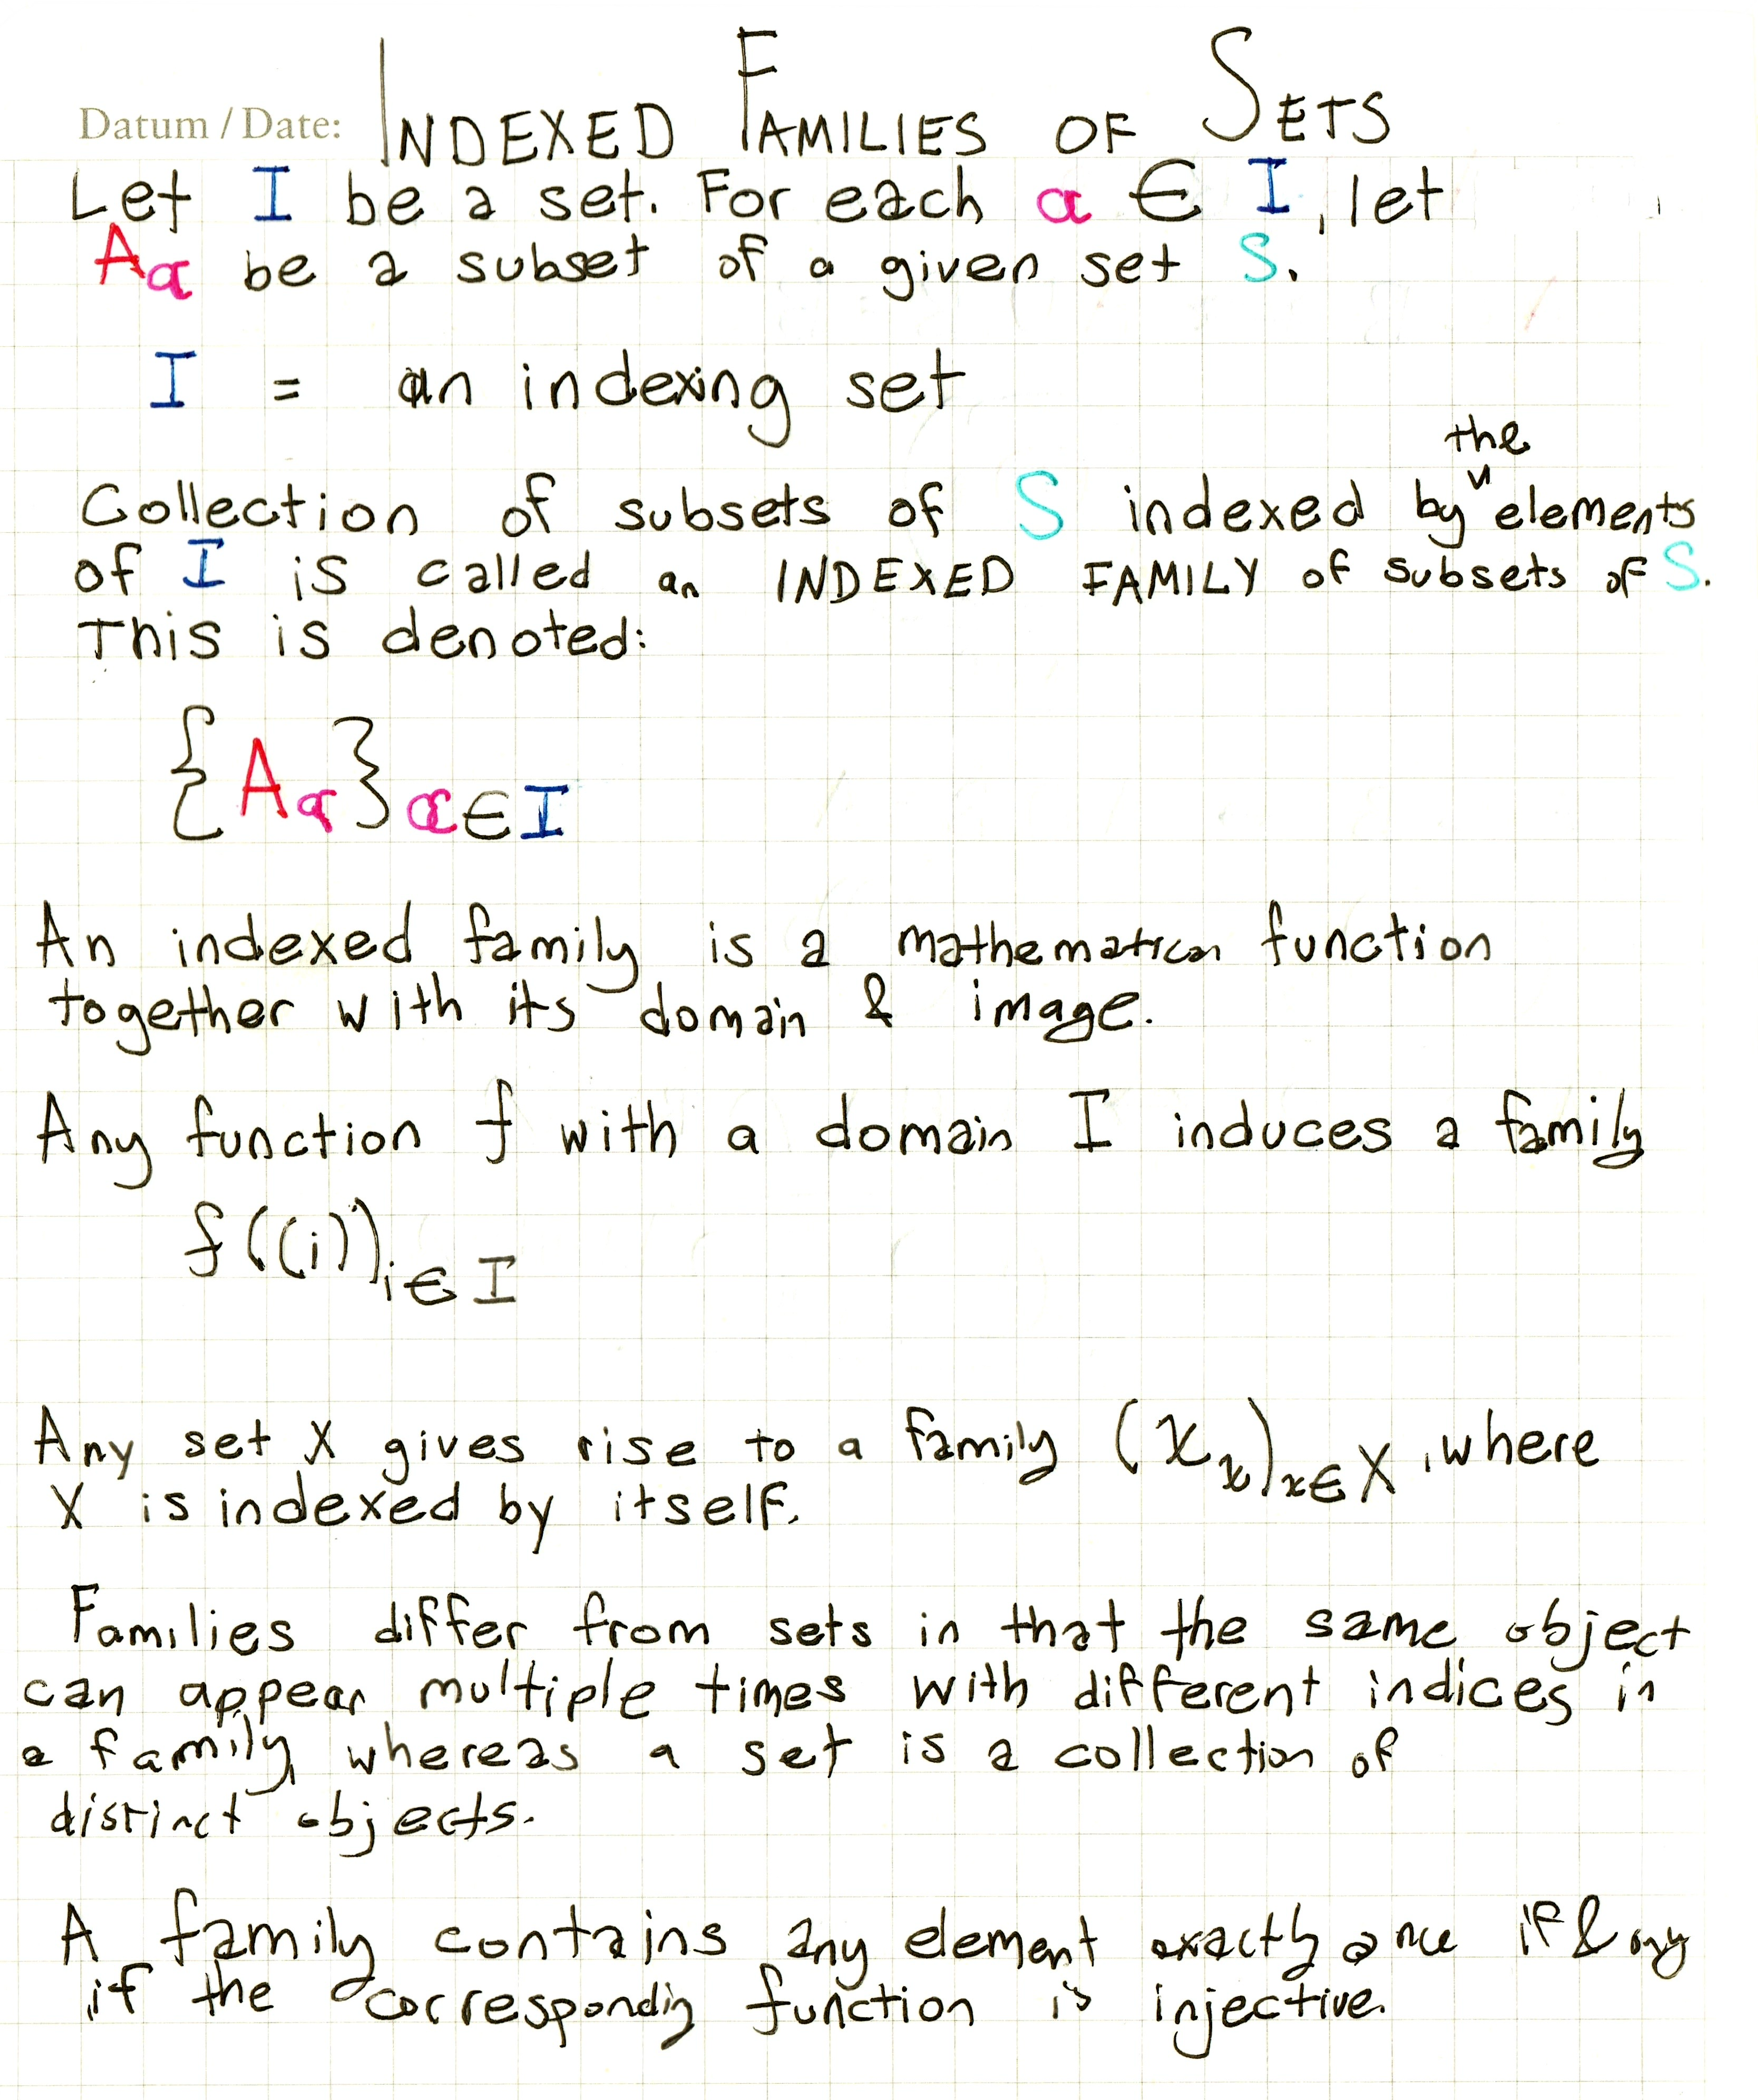 Datum / Date: INDEXED FAMILIES OF SETS
Let I be a set. For each α ∈ I, let
Aα be a subset of a given set S.
I = an indexing set
the
Collection of subsets of S indexed by elements
of I is called an INDEXED FAMILY of subsets of S.
This is denoted:
{Aα}α∈I
An indexed family is a mathematical function
together with its domain & image.
Any function f with a domain I induces a family
f((i))i∈I
Any set X gives rise to a family (xx)x∈X, where
X is indexed by itself.
Families differ from sets in that the same object
can appear multiple times with different indices in
a family, whereas a set is a collection of
distinct objects.
A family contains any element exactly once if & only
if the corresponding function is injective.